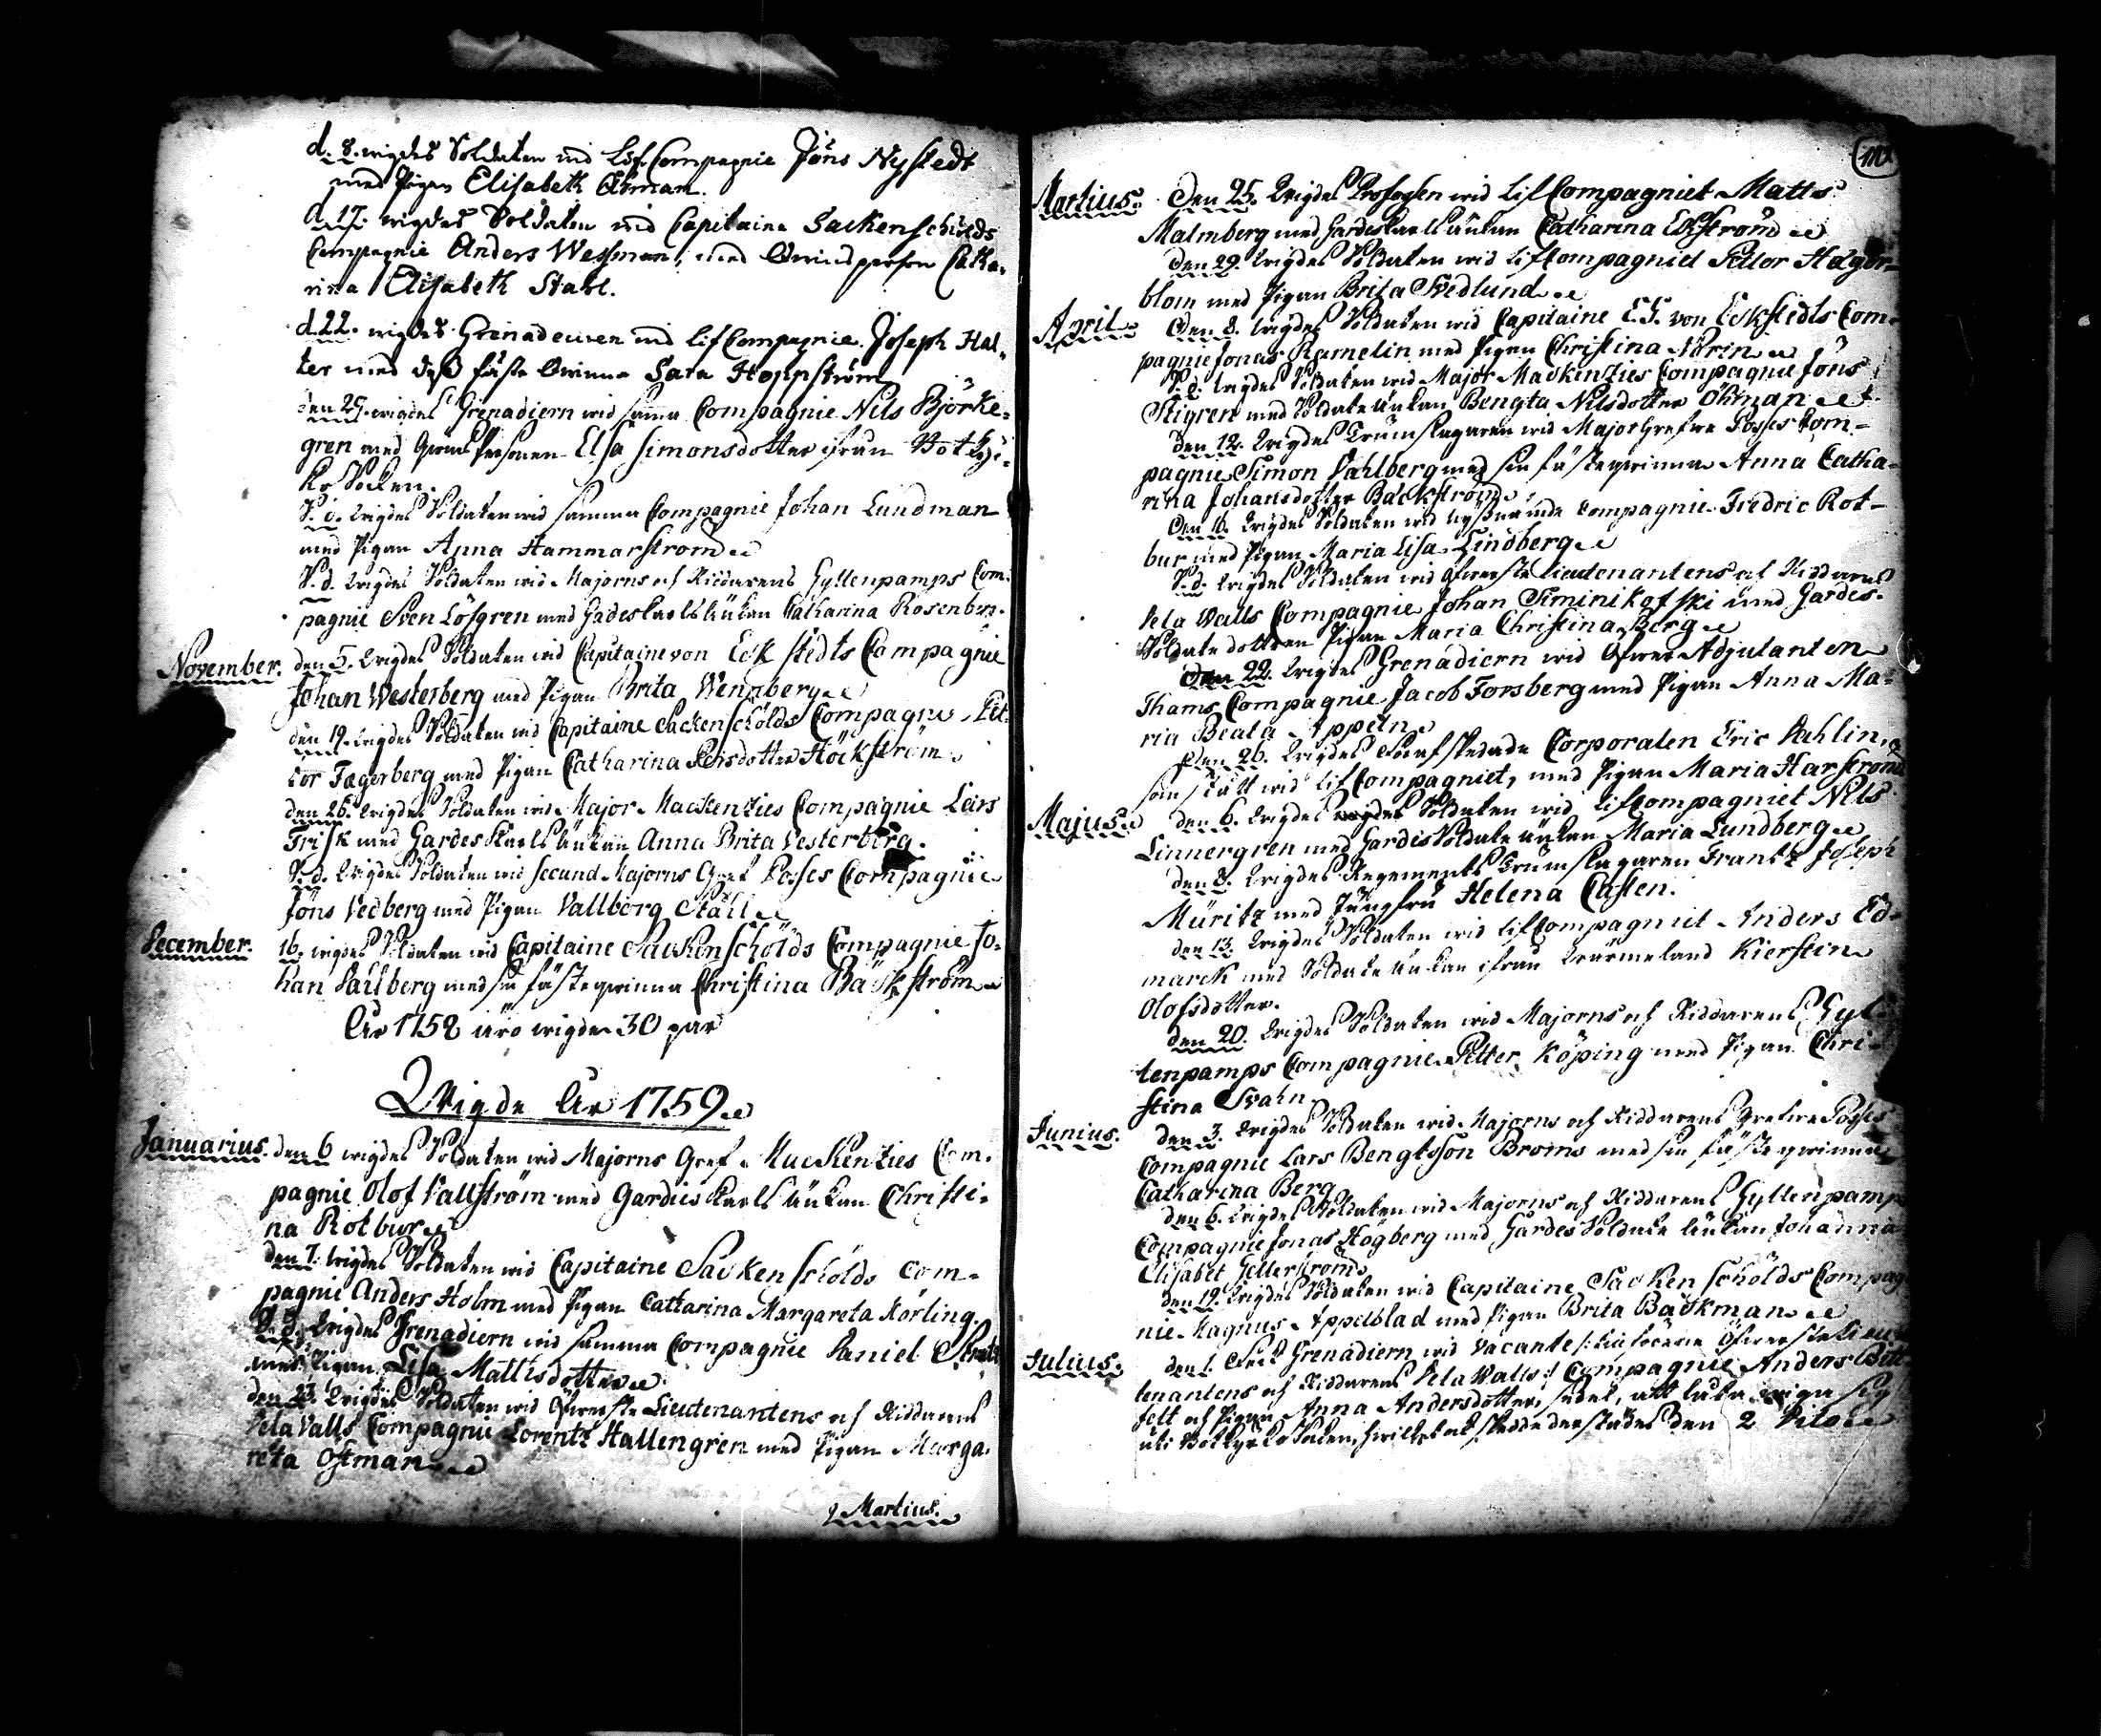 d. 8. wigdes Soldaten wid Lif Compagnie Jöns Nystedt
med Pigan Elisabeth Öhman.
d. 17. wigdes Soldaten wid Capitaine Sackenschiölds
Compagnie Anders Wessman, med Qwinsperson Catha-
rina Elisabeth Stahl.
d. 22. wigdes Grenadeuren wid Lif Compagnie Joseph Hal-
ter med dess fäste Qwinna Sara Hoppström
den 29. wigdes Grenadiern wid samma Compagnie Nils Björke-
gren med Qwins Personen Elsa Simonsdotter ifrån Botky-
rko Socken.
S. d. wigdes Soldaten wid samma Compagnie Johan Lundman
med Pigan Anna Hammarstrom
S. d. wigdes Soldaten wid Majorns och Riddarens Gyllenpamps Com-
pagnie Sven Löfgren med Gardeskarls Änkan Catharina Rosenbm.
November. den 5. wigdes Soldaten wid Capitaine von Eckstedts Compagnie
Johan Westerberg med Pigan Brita Wennberg
den 19. wigdes Soldaten wid Capitaine Sackenschölds Compagnie Pet-
ter Fagerberg med Pigan Catharina Persdotter Höckström
den 26. wigdes Soldaten wid Major Mackenzies Compagnie Lars
Frisk med Gardes Karls Änkan Anna Brita Vesterberg.
S. d. wigdes Soldaten wid Secund Majorns Gref Posses Compagnie
Jöns Vedberg med Pigan Vallborg Ståhl
December. 16. wigdes Soldaten wid Capitaine Sackenschölds Compagnie Jo-
han Dahlberg med sin fästeqwinna Christina Bäckström
År 1758 äro wigde 30 par
Wigde År 1759
Januarius. den 6 wigdes Soldaten wid Majorns Gref Mackenzies Com-
pagnie Olof Vallström med Gardies Karls Änkan Christi-
na Rotbur
den 7. wigdes Soldaten wid Capitaine Sackenschölds Com-
pagnie Anders Holm med Pigan Catharina Margareta Körling.
S. d. wigdes Grenadiern wid samma Compagnie Daniel
med Pigan Lisa Mattisdotter
den 23. wigdes Soldaten wid Öfwerste Lieutenantens och Riddarens
Dela Valls Compagnie Lorentz Hallengren med Pigan Marga-
reta Östman
Martius.
Martius. Den 25. wigdes Profossen wid Lif Compagniet Matts
Malmberg med Gardeskarls Änkan Catharina Ekström
Den 29. wigdes Soldaten wid Lif Compagniet Petter Hager-
blom med Pigan Brita Svedlund
April. Den 8. wigdes Soldaten wid Capitaine E. G. von Eckstedts Com-
pagnie Jonas Ramelin med Pigan Christina Norin
S. d. wigdes Soldaten wid Major Mackenzies Compagnie Jöns
Stigren med Soldate Änkan Bengta Nilsdotter Öhman
Den 12. wigdes Trumslagaren wid Major Grefwe Posses Com-
pagnie Simon Dahlberg med sin fästeqwinna Anna Catha-
rina Johansdotter Bäckström
Den 16. wigdes Soldaten wid nyssnemde Compagnie Fredric Rot-
bur med Pigan Maria Lisa Lindberg
S. d. wigdes Soldaten wid Öfwerste Lieutenantens och Riddarens
Dela Valls Compagnie Johan Siminikofski med Gardes-
Soldate dottren Pigan Maria Christina Berg
Den 22. wigdes Grenadiern wid Öfwer Adjutanten
Thams Compagnie Jacob Forsberg med Pigan Anna Ma-
ria Beata Appeln
Den 26. wigdes Corporalen Eric Dahlin,
som stått wid Lif Compagniet, med Pigan Maria Harström
Majus. den 6. wigdes Soldaten wid Lif Compagniet Nils
Linnergren med Gardis Soldate Änkan Maria Lundberg
den 8. wigdes Regements Trumslagaren Frantz Joseph
Müritz med Jungfru Helena Casten.
den 13. wigdes Soldaten wid Lif Compagniet Anders Ed-
marck med Soldate Änkan ifrån Wärmeland Kierstin
Olofsdotter.
den 20. wigdes Soldaten wid Majorns och Riddarens Gyl-
lenpamps Compagnie Petter Köping med Pigan Chri-
stina Svahn.
Junius. den 3. wigdes Soldaten wid Majorns och Riddarens Grefwe Posses
Compagnie Lars Bengtsson Broms med sin fästeqwinna
Catharina Berg
den 6. wigdes Soldaten wid Majorns och Riddarens Gyllenpamps
Compagnie Jonas Högberg med Gardes Soldate Änkan Johanna
Elisabet Gellerström
den 19. wigdes Soldaten wid Capitaine Sackenschölds Compag-
nie Magnus Appelblad med Pigan Brita Bäckman
Julius. den 1. Grenadiern wid Vacante Öfwerste Lieu-
tenantens och Riddarens Dela Valls Compagnie Anders Bitt-
felt och Pigan Anna Andersdotter, sedel, att låta wiga sig
uti Botkyrko Socken, hwilket ock skedde derstädes den 2 dito